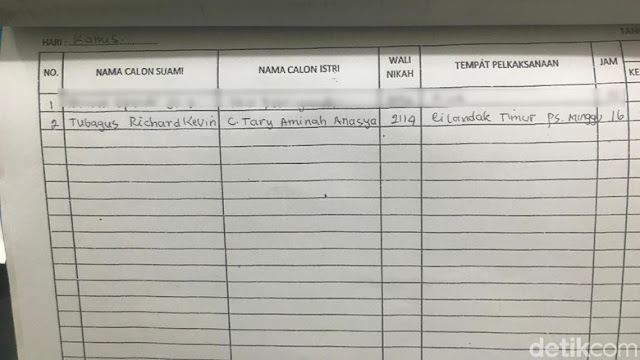 HARI : Kamis.
NO. NAMA CALON SUAMI NAMA CALON ISTRI WALI NIKAH TEMPAT PELKAKSANAAN JAM KE
1
2 Tubagus Richard Kevin C. Tary Aminah Anasya 2114 Cilandak Timur Ps. Minggu 16
detikcom